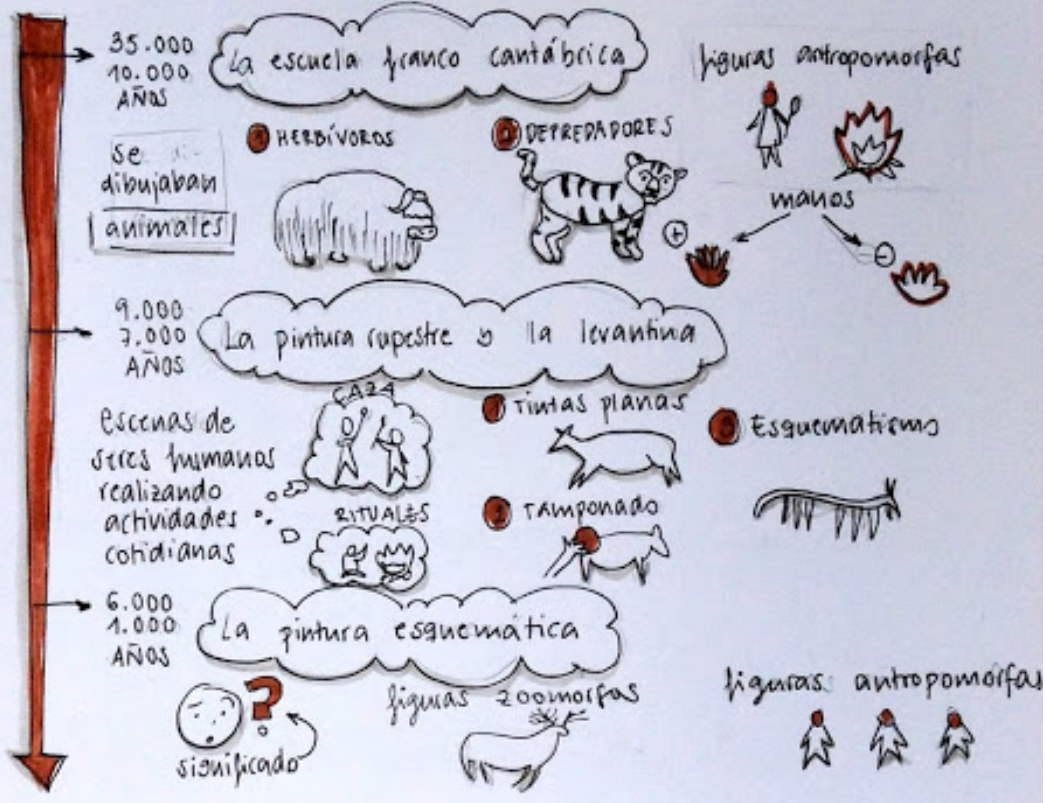 35.000
10.000
AÑOS
La escuela franco cantábrica
figuras antropomorfas
se di-
dibujaban
animales
1 HERBÍVOROS
2 DEPREDADORES
manos
+
-
9.000
7.000
AÑOS
La pintura rupestre y la levantina
escenas de
seres humanos
realizando
actividades
cotidianas
CAZA
RITUALES
1 Tintas planas
2 TAMPONADO
3 Esquematismo
6.000
1.000
AÑOS
La pintura esquemática
?
significado
figuras zoomorfas
figuras antropomorfas